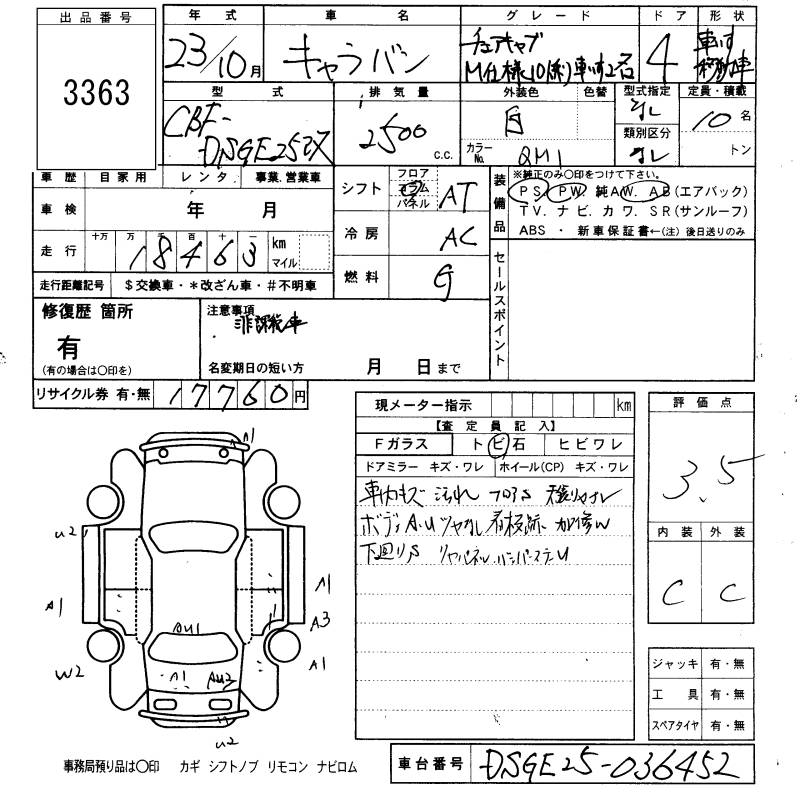 出品番号
3363
年式 車名 グレード ドア 形状
23/10月 キャラバン チェアキャブ 4 車いす
M仕様(10(除)車いす2名 移動車
型式 排気量 外装色 色替 型式指定 定員・積載
CBF- 2500 c.c. 白 ナシ 10名
DSGE25改 カラーNo. QM1 類別区分 ナシ トン
車歴 自家用 レンタ 事業.営業車
車検 年 月
走行 十万 万 千 百 十 一 18463 km マイル
走行距離記号 $交換車・*改ざん車・#不明車
シフト フロア コラム パネル AT
冷房 AC
燃料 G
装備品 ※純正のみ〇印をつけて下さい。
PS. PW. 純AW. AB(エアバック)
TV. ナビ. カワ. SR(サンルーフ)
ABS ・ 新車保証書←(注)後日送りのみ
セールスポイント
修復歴 箇所
有
(有の場合は〇印を)
注意事項
非課税車
名変期日の短い方 月 日まで
リサイクル券 有・無 17760円
現メーター指示 km
【査定員記入】
Fガラス トビ石 ヒビワレ
ドアミラー キズ・ワレ ホイール(CP) キズ・ワレ
車内キズ 汚れ フロアS
ボディA.U ツヤナシ 看板跡 加修W
下廻りS リヤパネル.バンパーステーU
評価点
3.5
内装 外装
C C
ジャッキ 有・無
工具 有・無
スペアタイヤ 有・無
A1
U2
A1
A1
A3
A1
W2
AU1
A1
AU2
U2
事務局預り品は〇印 カギ シフトノブ リモコン ナビロム
車台番号 DSGE25-036452